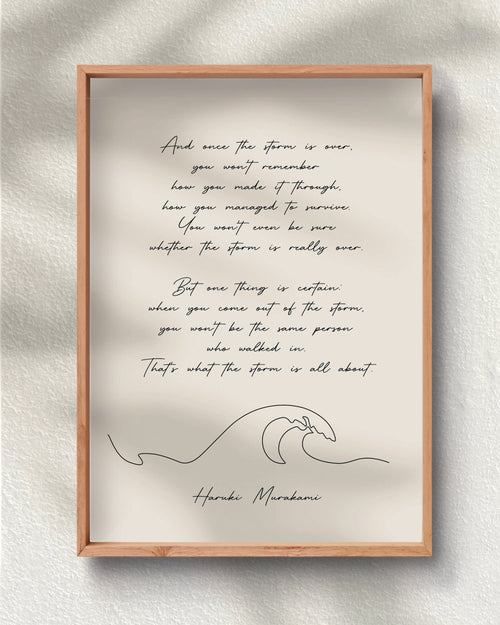 And once the storm is over,
you won't remember
how you made it through,
how you managed to survive.
You won't even be sure
whether the storm is really over.
But one thing is certain:
when you come out of the storm,
you won't be the same person
who walked in.
That's what the storm is all about.
Haruki Murakami